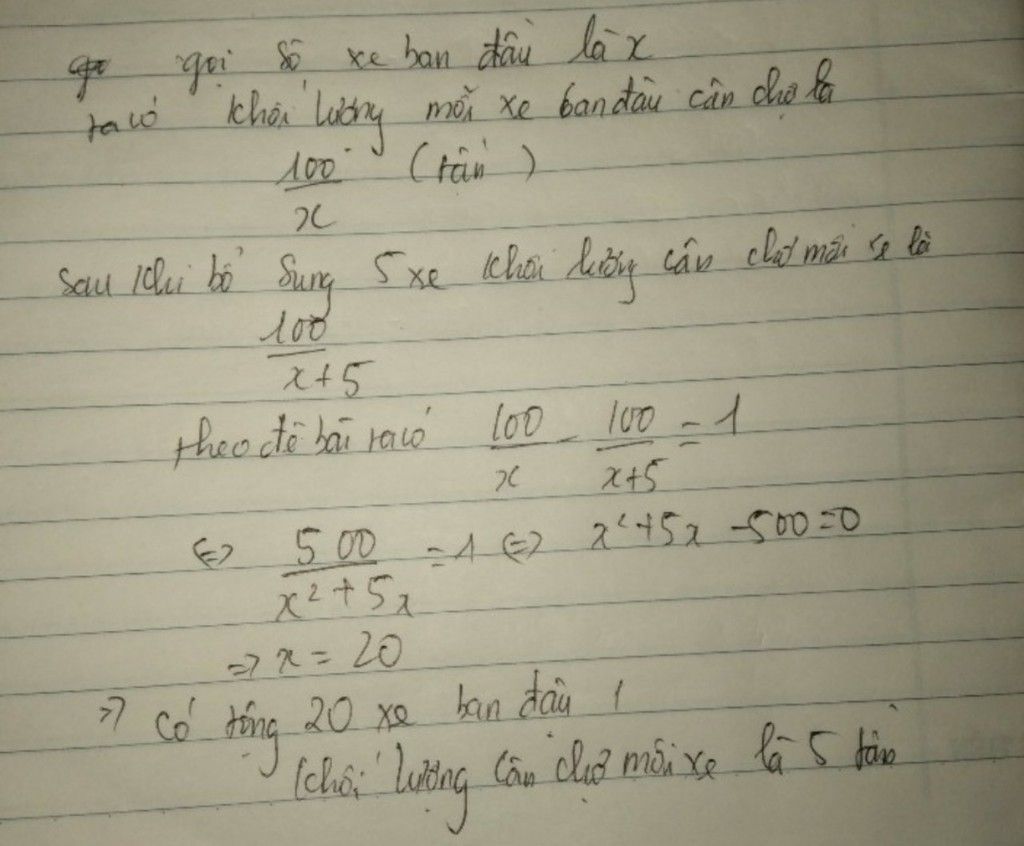 gọi số xe ban đầu là x
ta có khối lượng mỗi xe ban đầu cần chở là
100/x (tấn)
sau khi bổ sung 5 xe khối lượng cần chở mỗi xe là
100/x+5
theo đề bài ta có 100/x - 100/x+5 = 1
⇔ 500/x²+5x = 1 ⇔ x²+5x-500=0
⇒ x = 20
⇒ có tổng 20 xe ban đầu
khối lượng cần chở mỗi xe là 5 tấn